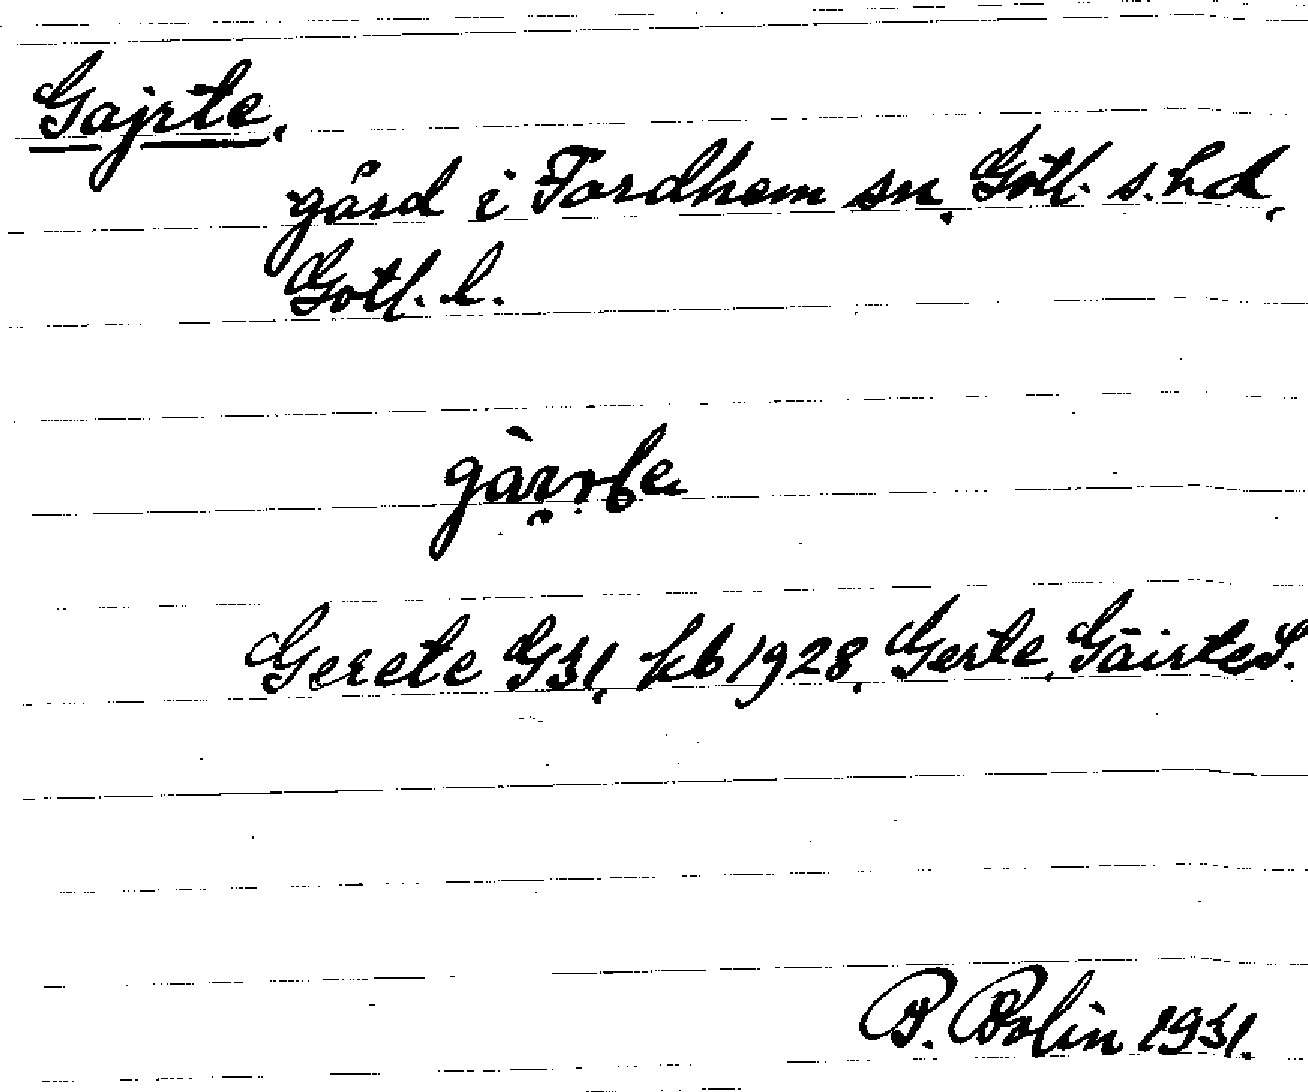 Gajrte.
gård i Fardhem sn, Gotl. s. hd,
Gotl. l.
Gerete G31, kb 1928, Gerte, Gäirte S.
P. Bolin 1931.